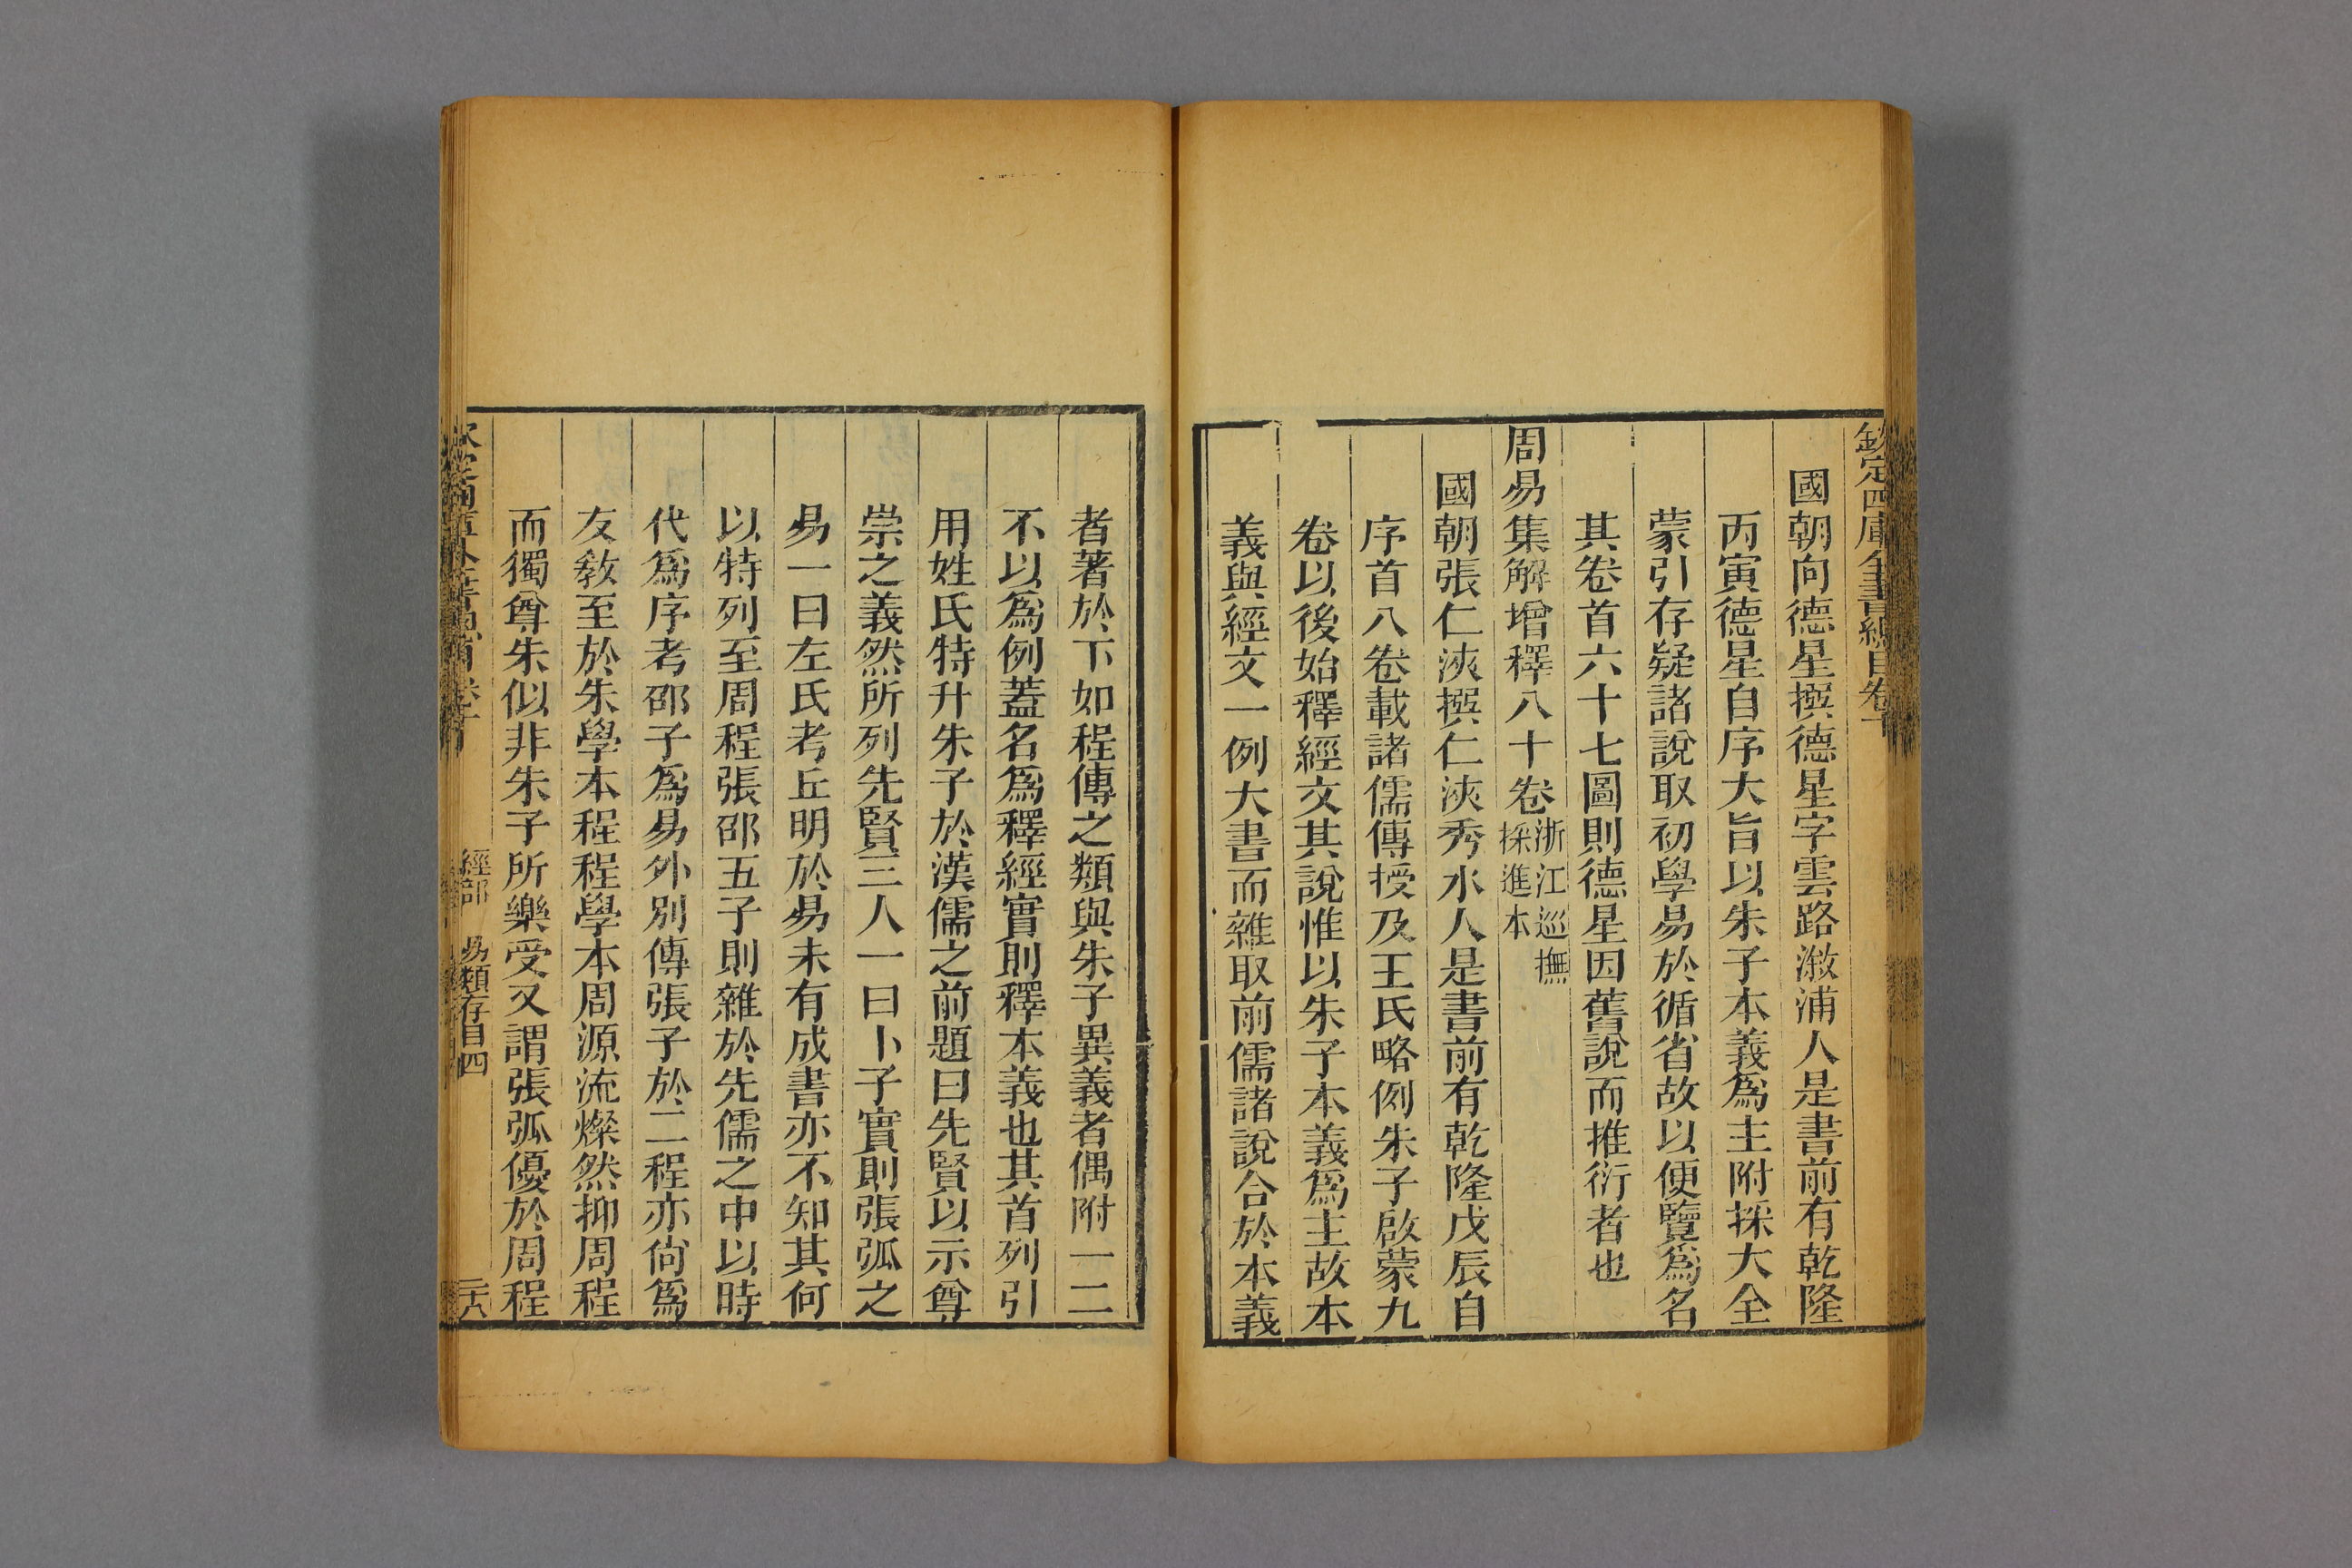 欽定四庫全書總目卷十
國朝向德星撰德星字雲路漵浦人是書前有乾隆
丙寅德星自序大旨以朱子本義爲主附採大全
蒙引存疑諸說取初學易於循省故以便覽爲名
其卷首六十七圖則德星因舊說而推衍者也
周易集解增釋八十卷
浙江巡撫
採進本
國朝張仁浹撰仁浹秀水人是書前有乾隆戊辰自
序首八卷載諸儒傳授及王氏略例朱子啟蒙九
卷以後始釋經文其說惟以朱子本義爲主故本
義與經文一例大書而雜取前儒諸說合於本義
者著於下如程傳之類與朱子異義者偶附一二
不以爲例蓋名爲釋經實則釋本義也其首列引
用姓氏特升朱子於漢儒之前題曰先賢以示尊
崇之義然所列先賢三人一曰卜子實則張弧之
易一曰左氏考丘明於易未有成書亦不知其何
以特列至周程張邵五子則雜於先儒之中以時
代爲序考邵子爲易外別傳張子於二程亦尙爲
友敎至於朱學本程程學本周源流燦然抑周程
而獨尊朱似非朱子所樂受又謂張弧優於周程
經部 易類存目四
二十八